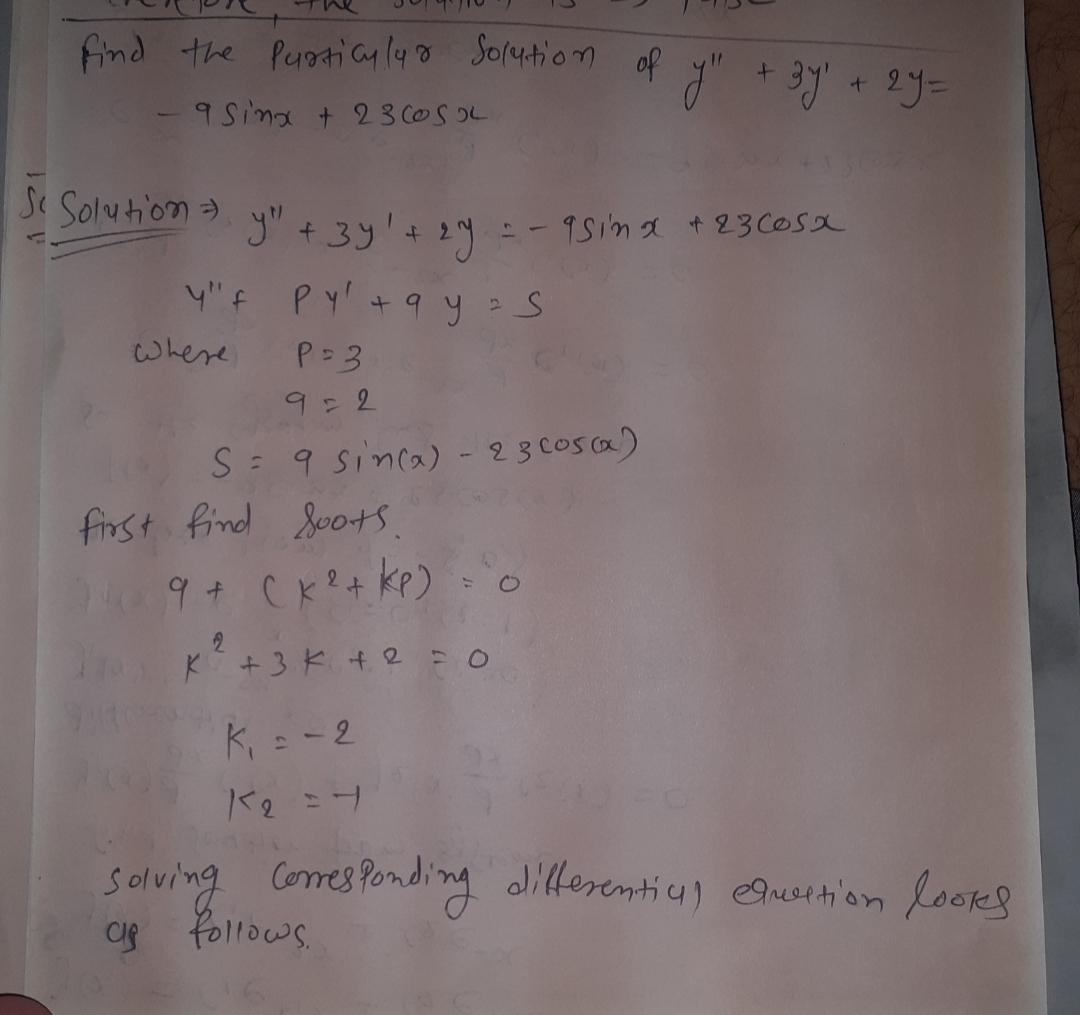 find the Particular Solution of y" + 3y' + 2y =
- 9 sinx + 23cosx
Solution ⇒ y" + 3y' + 2y = - 9sinx + 23cosx
y" + Py' + qy = S
where P = 3
q = 2
S = 9 sin(x) - 23cos(x)
first find roots.
q + (k² + kp) = 0
k² + 3k + 2 = 0
K₁ = -2
K₂ = -1
solving corresponding differential equation looks
as follows.